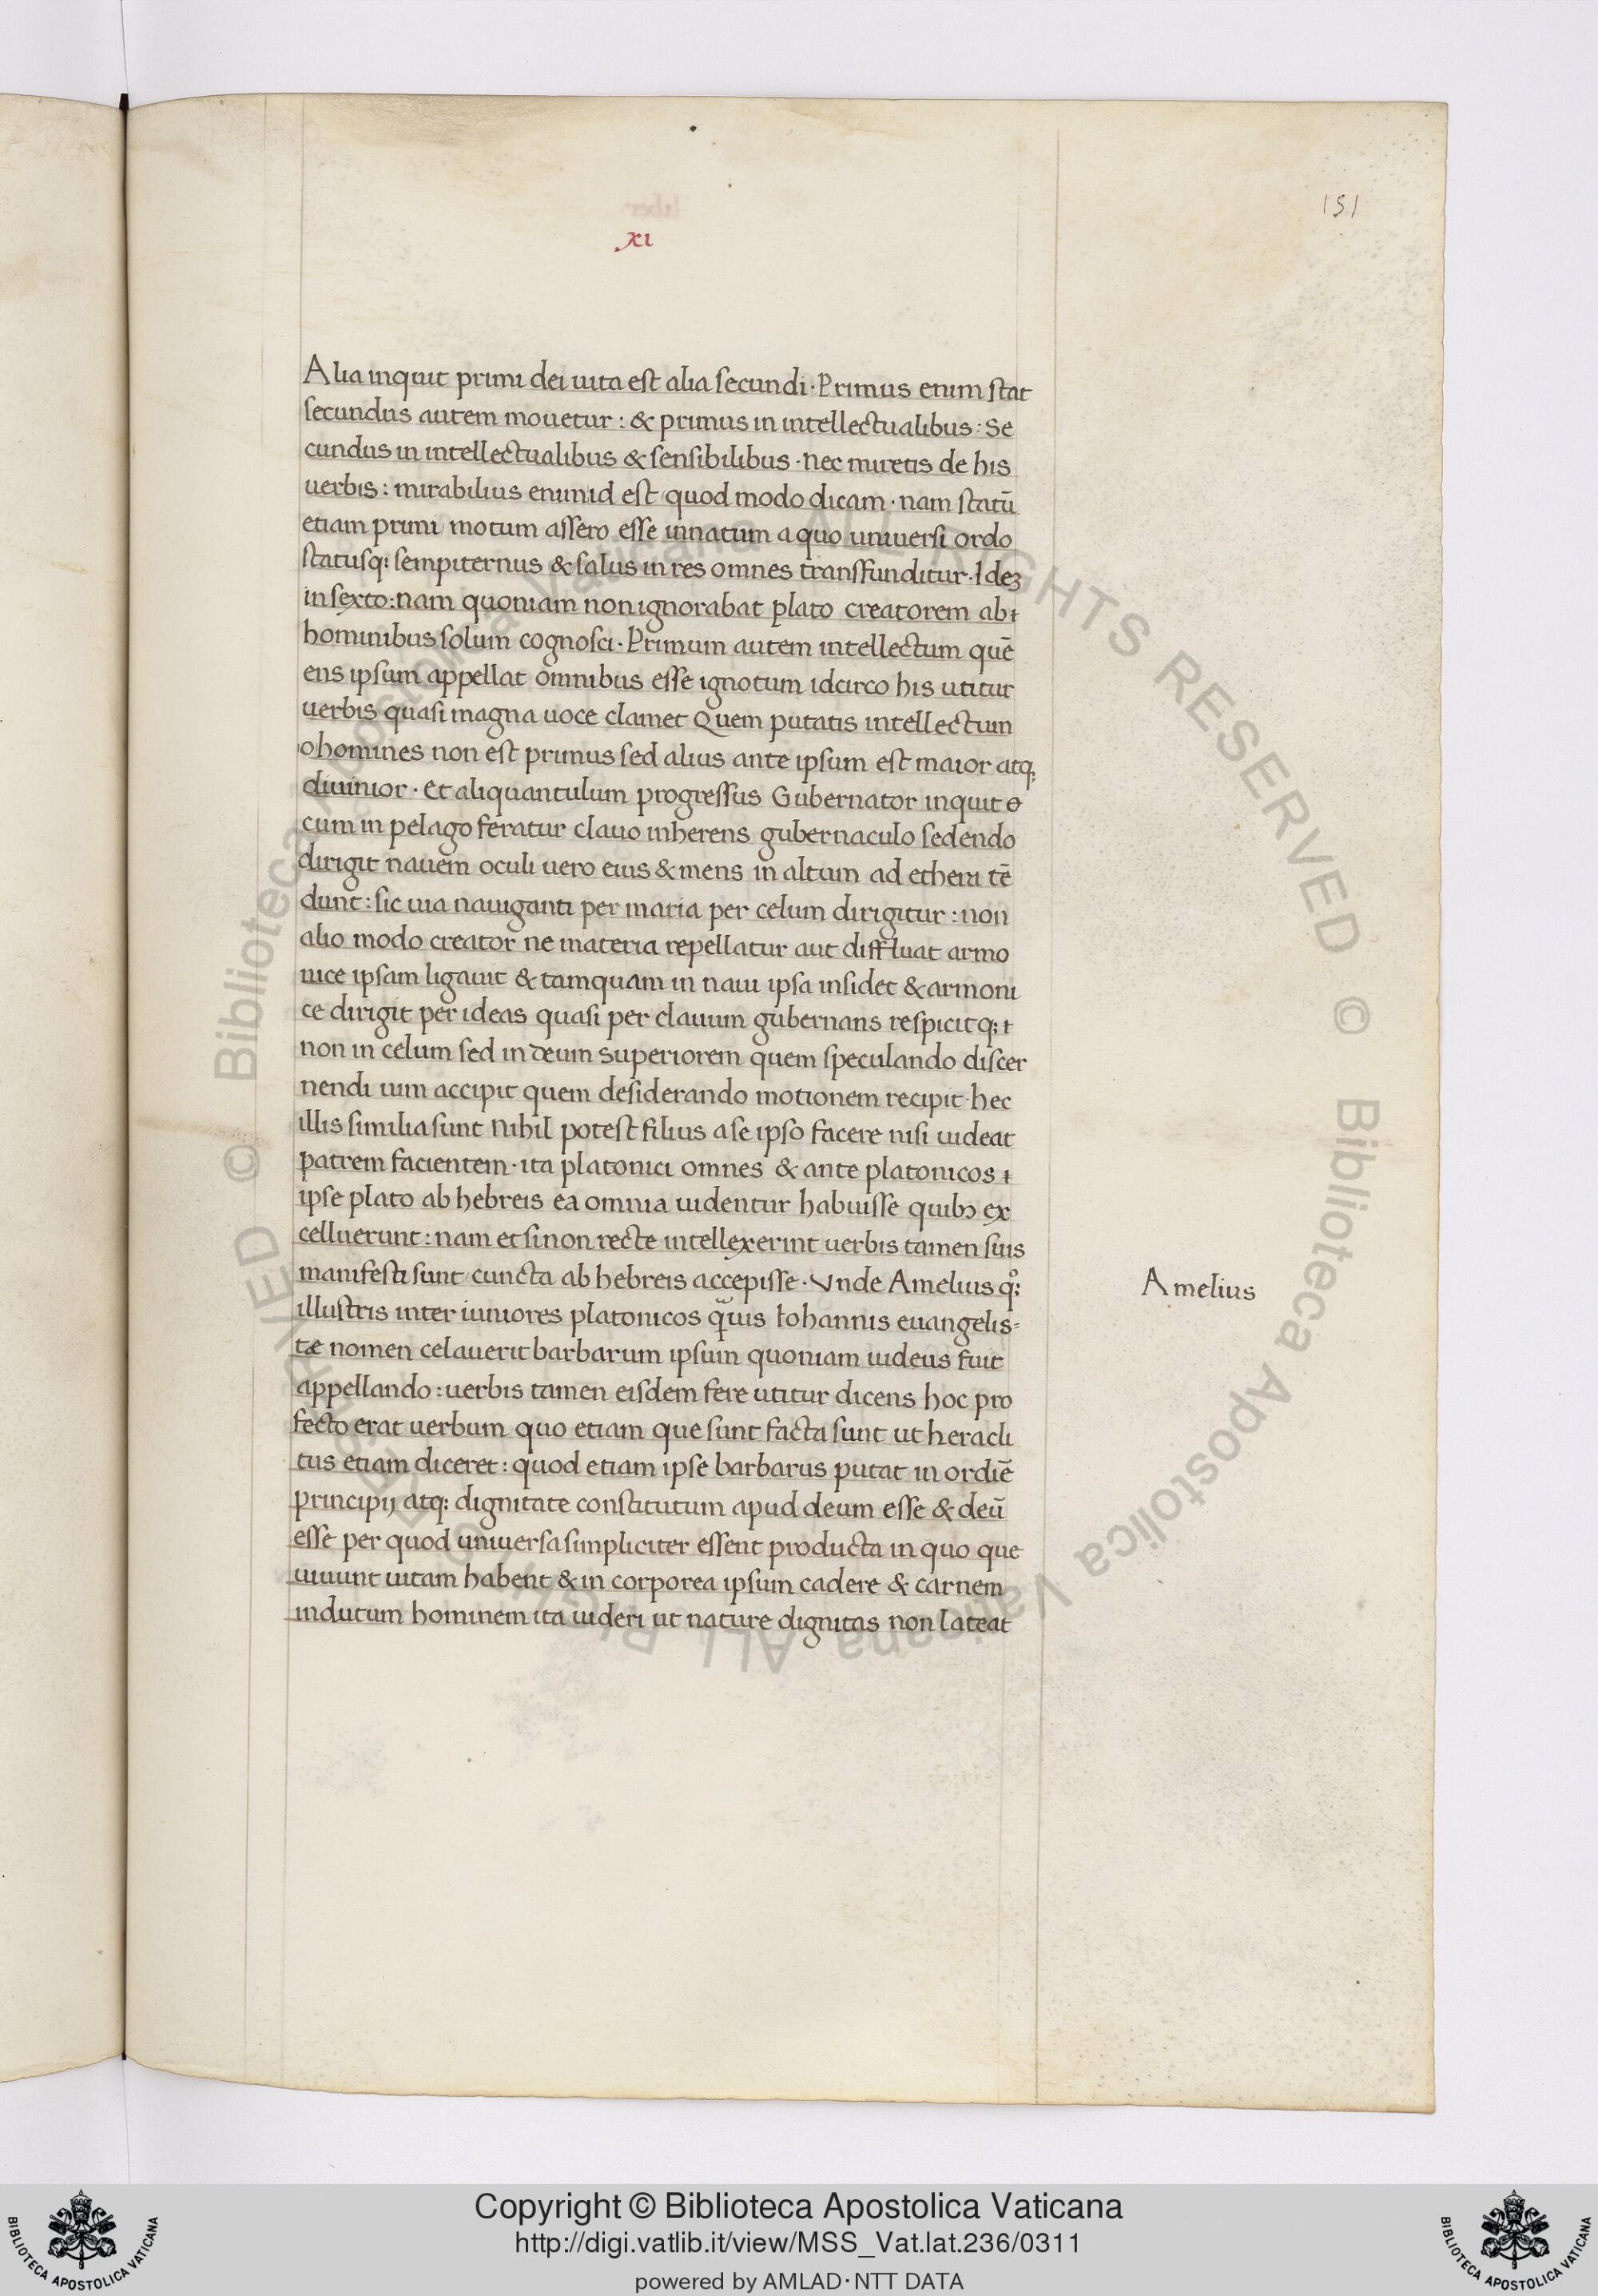 151
xi
Alia inquit primi dei uita est alia secundi · Primus enim stat
secundus autem mouetur : & primus in intellectualibus : Se
cundus in intellectualibus & sensibilibus · nec miretis de his
uerbis : mirabilius enim id est quod modo dicam · nam statū
etiam primi motum assero esse innatum a quo uniuersi ordo
statusq; sempiternus & salus in res omnes transfunditur · Ideʒ
in sexto : nam quoniam non ignorabat plato creatorem ab
hominibus solum cognosci · Primum autem intellectum quē
ens ipsum appellat omnibus esse ignotum idcirco his utitur
uerbis quasi magna uoce clamet Quem putatis intellectum
o homines non est primus sed alius ante ipsum est maior atq;
diuinior · Et aliquantulum progressus Gubernator inquit
cum in pelago feratur clauo inherens gubernaculo sedendo
dirigit nauem oculi uero eius & mens in altum ad ethera tē
dunt : sic uia nauiganti per maria per celum dirigitur : non
alio modo creator ne materia repellatur aut diffluat armo
nice ipsam ligauit & tamquam in naui ipsa insidet & armoni
ce dirigit per ideas quasi per clauum gubernans respicitq;
non in celum sed in deum superiorem quem speculando discer
nendi uim accipit quem desiderando motionem recipit · hec
illis similia sunt nihil potest filius a se ipso facere nisi uideat
patrem facientem · ita platonici omnes & ante platonicos
ipse plato ab hebreis ea omnia uidentur habuisse quibꝫ ex
celluerunt : nam et si non recte intellexerint uerbis tamen suis
manifesti sunt cuncta ab hebreis accepisse · Vnde Amelius qͦ;
Amelius
illustris inter iuniores platonicos q̃uis Iohannis euangelis-
tæ nomen celauerit barbarum ipsum quoniam iudeus fuit
appellando : uerbis tamen eisdem fere utitur dicens hoc pro
fecto erat uerbum quo etiam que sunt facta sunt ut heracli
tus etiam diceret : quod etiam ipse barbarus putat in ordiē
principij atq; dignitate constitutum apud deum esse & deū
esse per quod uniuersa simpliciter essent producta in quo que
uiuunt uitam habent & in corporea ipsum cadere & carnem
indutum hominem ita uideri ut nature dignitas non lateat
© Biblioteca Apostolica Vaticana ALL RIGHTS RESERVED © Biblioteca Apostolica Vaticana ALL RIGHTS RESERVED
Copyright © Biblioteca Apostolica Vaticana
http://digi.vatlib.it/view/MSS_Vat.lat.236/0311
powered by AMLAD·NTT DATA
BIBLIOTECA APOSTOLICA VATICANA
BIBLIOTECA APOSTOLICA VATICANA